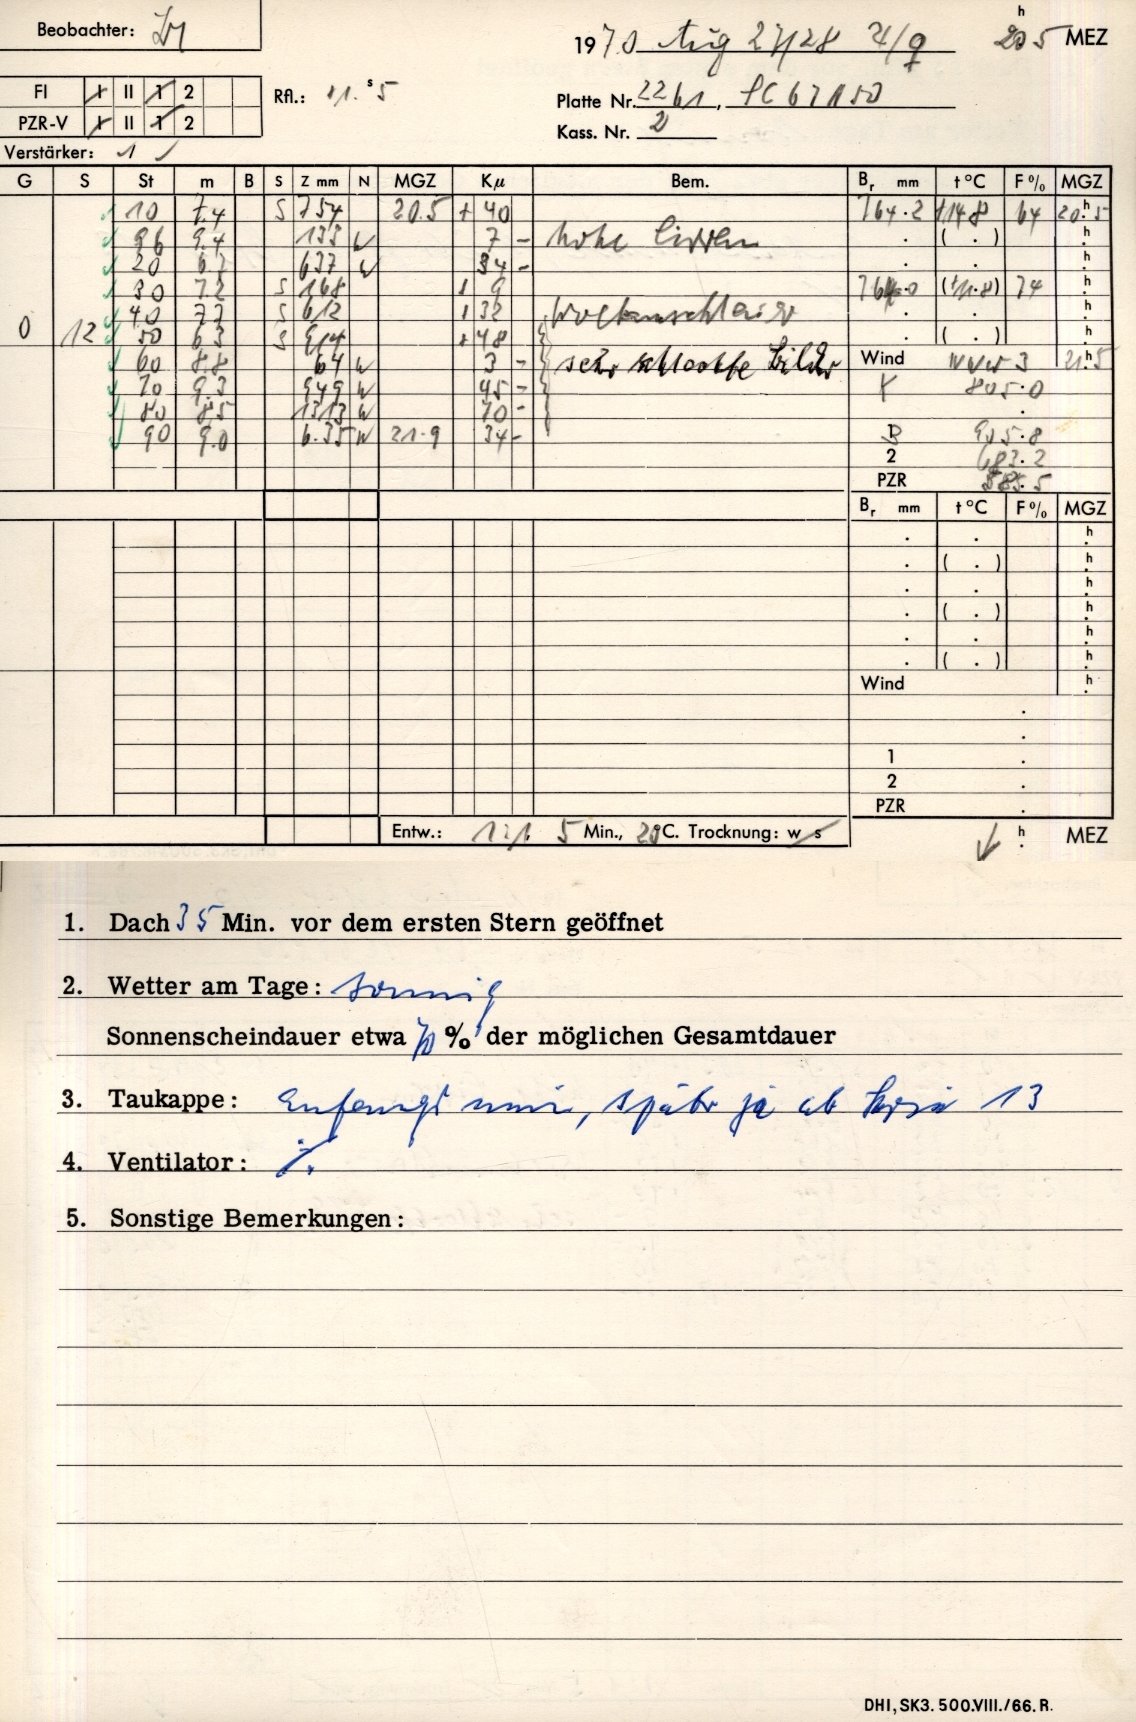 Beobachter:
1970 Aug 27/28 4/9 20 5 h MEZ
FI I II 1 2 Rfl.: 11. s 5
PZR-V I II 1 2 Platte Nr. 2261, SC 67A50
Kass. Nr. 2
Verstärker: 1
G S St m B S Z mm N MGZ Kμ Bem. Br mm t °C F % MGZ
10 7.4 S 754 20.5 + 40 764.2 64 20.h5
96 9.4 133 W 7 - hohe Cirren . ( . ) h
20 6.7 637 W 34 - . . h
30 7.2 S 168 + 9 764.0 (11.8) 74 h
40 7.7 S 612 + 32 Wolkenschleier . . h
0 12 50 6.3 S 914 + 48 . ( . ) h
60 8.8 64 W 3 - sehr schlechte Bilder Wind WNW 3 21.h5
70 9.3 949 W 45 - K 805.0
80 8.5 1313 W 10 - .
90 9.0 6.35 W 21.9 34 - B 905.8
2 683.2
PZR 585.5
Br mm t °C F % MGZ
. . h
. ( . ) h
. . h
. ( . ) h
. . h
. ( . ) h
Wind h
.
.
1 .
2 .
PZR .
Entw.: 121, 5 Min., 20 C. Trocknung: w s h MEZ
1. Dach 35 Min. vor dem ersten Stern geöffnet
2. Wetter am Tage: sonnig
Sonnenscheindauer etwa 70 % der möglichen Gesamtdauer
3. Taukappe: Anfangs nein, später ja ab Serie 13
4. Ventilator: ·/.
5. Sonstige Bemerkungen:
DHI, SK3. 500.VIII./66. R.